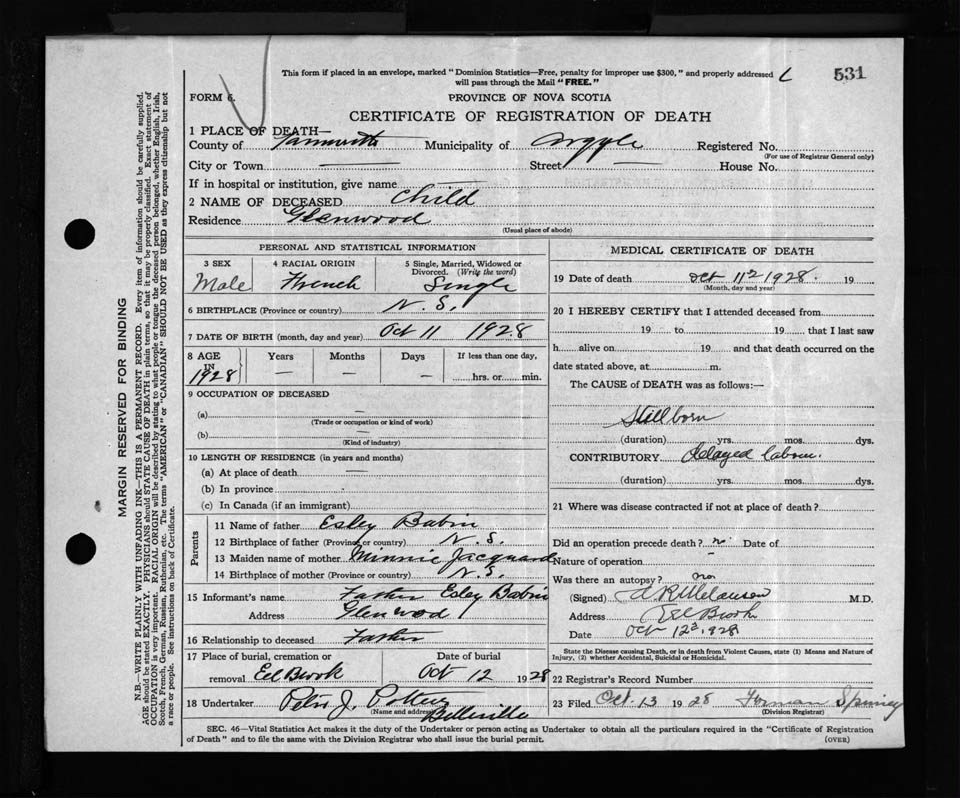 This form if placed in an envelope, marked "Dominion Statistics—Free, penalty for improper use $300," and properly addressed
will pass through the Mail "FREE."
531
FORM 6.
PROVINCE OF NOVA SCOTIA
CERTIFICATE OF REGISTRATION OF DEATH
1 PLACE OF DEATH—
County of Yarmouth Municipality of Argyle Registered No.
(For use of Registrar General only)
City or Town — Street — House No.
If in hospital or institution, give name —
2 NAME OF DECEASED Child
Residence Glenwood
(Usual place of abode)
PERSONAL AND STATISTICAL INFORMATION
3 SEX 4 RACIAL ORIGIN 5 Single, Married, Widowed or
Divorced. (Write the word)
Male French Single
6 BIRTHPLACE (Province or country) N.S.
7 DATE OF BIRTH (month, day and year) Oct 11 1928
8 AGE Years Months Days If less than one day,
IN
1928 — — — hrs. or min.
9 OCCUPATION OF DECEASED
(a) —
(Trade or occupation or kind of work)
(b) —
(Kind of industry)
10 LENGTH OF RESIDENCE (in years and months)
(a) At place of death —
(b) In province
(c) In Canada (if an immigrant)
Parents
11 Name of father Esley Babin
12 Birthplace of father (Province or country) N.S.
13 Maiden name of mother Minnie Jacquard
14 Birthplace of mother (Province or country) N.S.
15 Informant's name Father Esley Babin
Address Glenwod
16 Relationship to deceased Father
17 Place of burial, cremation or Date of burial
removal Eel Brook Oct 12 1928
18 Undertaker Peter J. Pottier
(Name and address) Belleville
MEDICAL CERTIFICATE OF DEATH
19 Date of death Oct 11 1928. 19
(Month, day and year)
20 I HEREBY CERTIFY that I attended deceased from
19 to 19 that I last saw
h alive on 19 and that death occurred on the
date stated above, at m.
The CAUSE of DEATH was as follows:—
Stillborn
(duration) yrs. mos. dys.
CONTRIBUTORY delayed labour.
(duration) yrs. mos. dys.
21 Where was disease contracted if not at place of death?
Did an operation precede death? no Date of
Nature of operation —
Was there an autopsy? no
(Signed) M.D.
Address Eel Brook
Date Oct 12, 1928
State the Disease causing Death, or in death from Violent Causes, state (1) Means and Nature of
Injury, (2) whether Accidental, Suicidal or Homicidal.
22 Registrar's Record Number
23 Filed Oct. 13 1928 Forman Spinney
(Division Registrar)
SEC. 46—Vital Statistics Act makes it the duty of the Undertaker or person acting as Undertaker to obtain all the particulars required in the "Certificate of Registration
of Death" and to file the same with the Division Registrar who shall issue the burial permit.
(OVER)
MARGIN RESERVED FOR BINDING
N.B.—WRITE PLAINLY WITH UNFADING INK—THIS IS A PERMANENT RECORD. Every item of information should be carefully supplied.
AGE should be stated EXACTLY. PHYSICIANS should STATE CAUSE OF DEATH in plain terms, so that it may be properly classified. Exact statement of
OCCUPATION is very important. RACIAL ORIGIN will be described by stating to what people or tongue the deceased person belonged, whether English, Irish,
Scotch, French, German, Russian, Ruthenian, etc. The terms "AMERICAN" or "CANADIAN" SHOULD NOT BE USED as they express citizenship but not
a race or people. See instructions on back of Certificate.